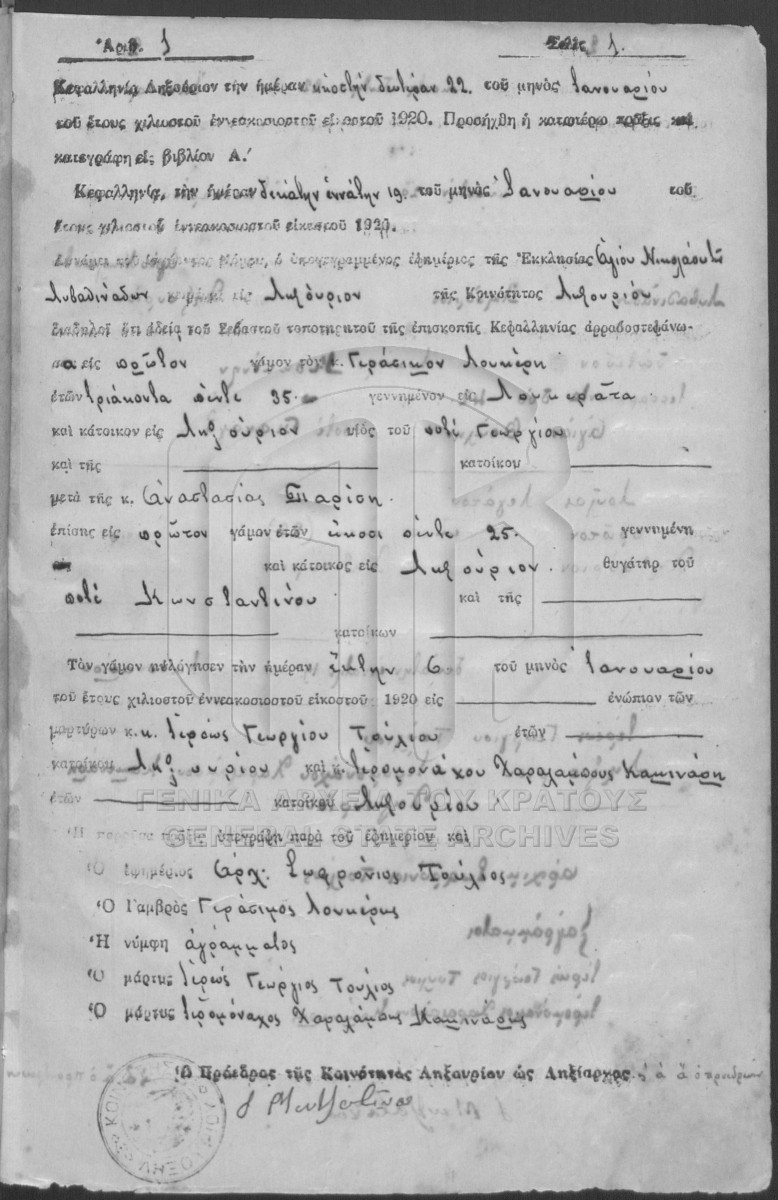 Ἀριθ. 1 Σελὶς 1.
Κεφαλληνία Ληξούριον τὴν ἡμέραν εἰκοστὴν δευτέραν 22. τοῦ μηνὸς Ἰανουαρίου
τοῦ ἔτους χιλιοστοῦ ἐννεακοσιοστοῦ εἰκοστοῦ 1920. Προσήχθη ἡ κατωτέρω πρᾶξις καὶ
κατεγράφη εἰς βιβλίον Α.′
Κεφαλληνία, τὴν ἡμέραν δεκάτην ἐννάτην 19. τοῦ μηνὸς Ἰανουαρίου τοῦ
ἔτους χιλιοστοῦ ἐννεακοσιοστοῦ εἰκοστοῦ 1920.
Δυνάμει τοῦ Νόμου, ὁ ὑπογεγραμμένος ἐφημέριος τῆς Ἐκκλησίας Ἁγίου Νικολάου τῶν
Λιβαδινάδων κειμένης εἰς Ληξούριον τῆς Κοινότητος Ληξουρίου
διαδηλοῖ ὅτι ἀδείᾳ τοῦ Σεβαστοῦ τοποτηρητοῦ τῆς ἐπισκοπῆς Κεφαλληνίας ἀρραβοστεφάνω-
σα εἰς πρῶτον γάμον τὸν κ. Γεράσιμον Λουκέρη
ἐτῶν τριάκοντα πέντε 35. γεννημένον εἰς Λουκεράτα
καὶ κάτοικον εἰς Ληξούριον υἱὸς τοῦ ποτὲ Γεωργίου
καὶ τῆς κατοίκου
μετὰ τῆς κ. Ἀναστασίας Παρίση.
ἐπίσης εἰς πρῶτον γάμον ἐτῶν εἴκοσι πέντε 25. γεννημένη
εἰς καὶ κάτοικος εἰς Ληξούριον. θυγάτηρ τοῦ
ποτὲ Κωνσταντίνου καὶ τῆς
κατοίκων
Τὸν γάμον ηὐλόγησεν τὴν ἡμέραν ἕκτην 6 τοῦ μηνὸς Ἰανουαρίου
τοῦ ἔτους χιλιοστοῦ ἐννεακοσιοστοῦ εἰκοστοῦ 1920 εἰς ἐνώπιον τῶν
μαρτύρων κ.κ. Ἱερέως Γεωργίου Τούλιου ἐτῶν
κατοίκου Ληξουρίου καὶ κ. Ἱερομονάχου Χαραλάμπους Καμινάρη
ἐτῶν κατοίκου Ληξουρίου.
ΓΕΝΙΚΑ ΑΡΧΕΙΑ ΤΟΥ ΚΡΑΤΟΥΣ
Ἡ παροῦσα πρᾶξις ὑπεγράφη παρὰ τοῦ ἐφημερίου καὶ
GENERAL STATE ARCHIVES
Ὁ ἐφημέριος Ἀρχ. Σωφρόνιος Τούλιος
Ὁ Γαμβρὸς Γεράσιμος Λουκέρης
Ἡ νύμφη ἀγράμματος
Ὁ μάρτυς Ἱερεὺς Γεώργιος Τούλιος
Ὁ μάρτυς Ἱερομόναχος Χαραλάμπης Καμινάρης
Ὁ Πρόεδρος τῆς Κοινότητας Ληξουρίου ὡς Ληξίαρχος